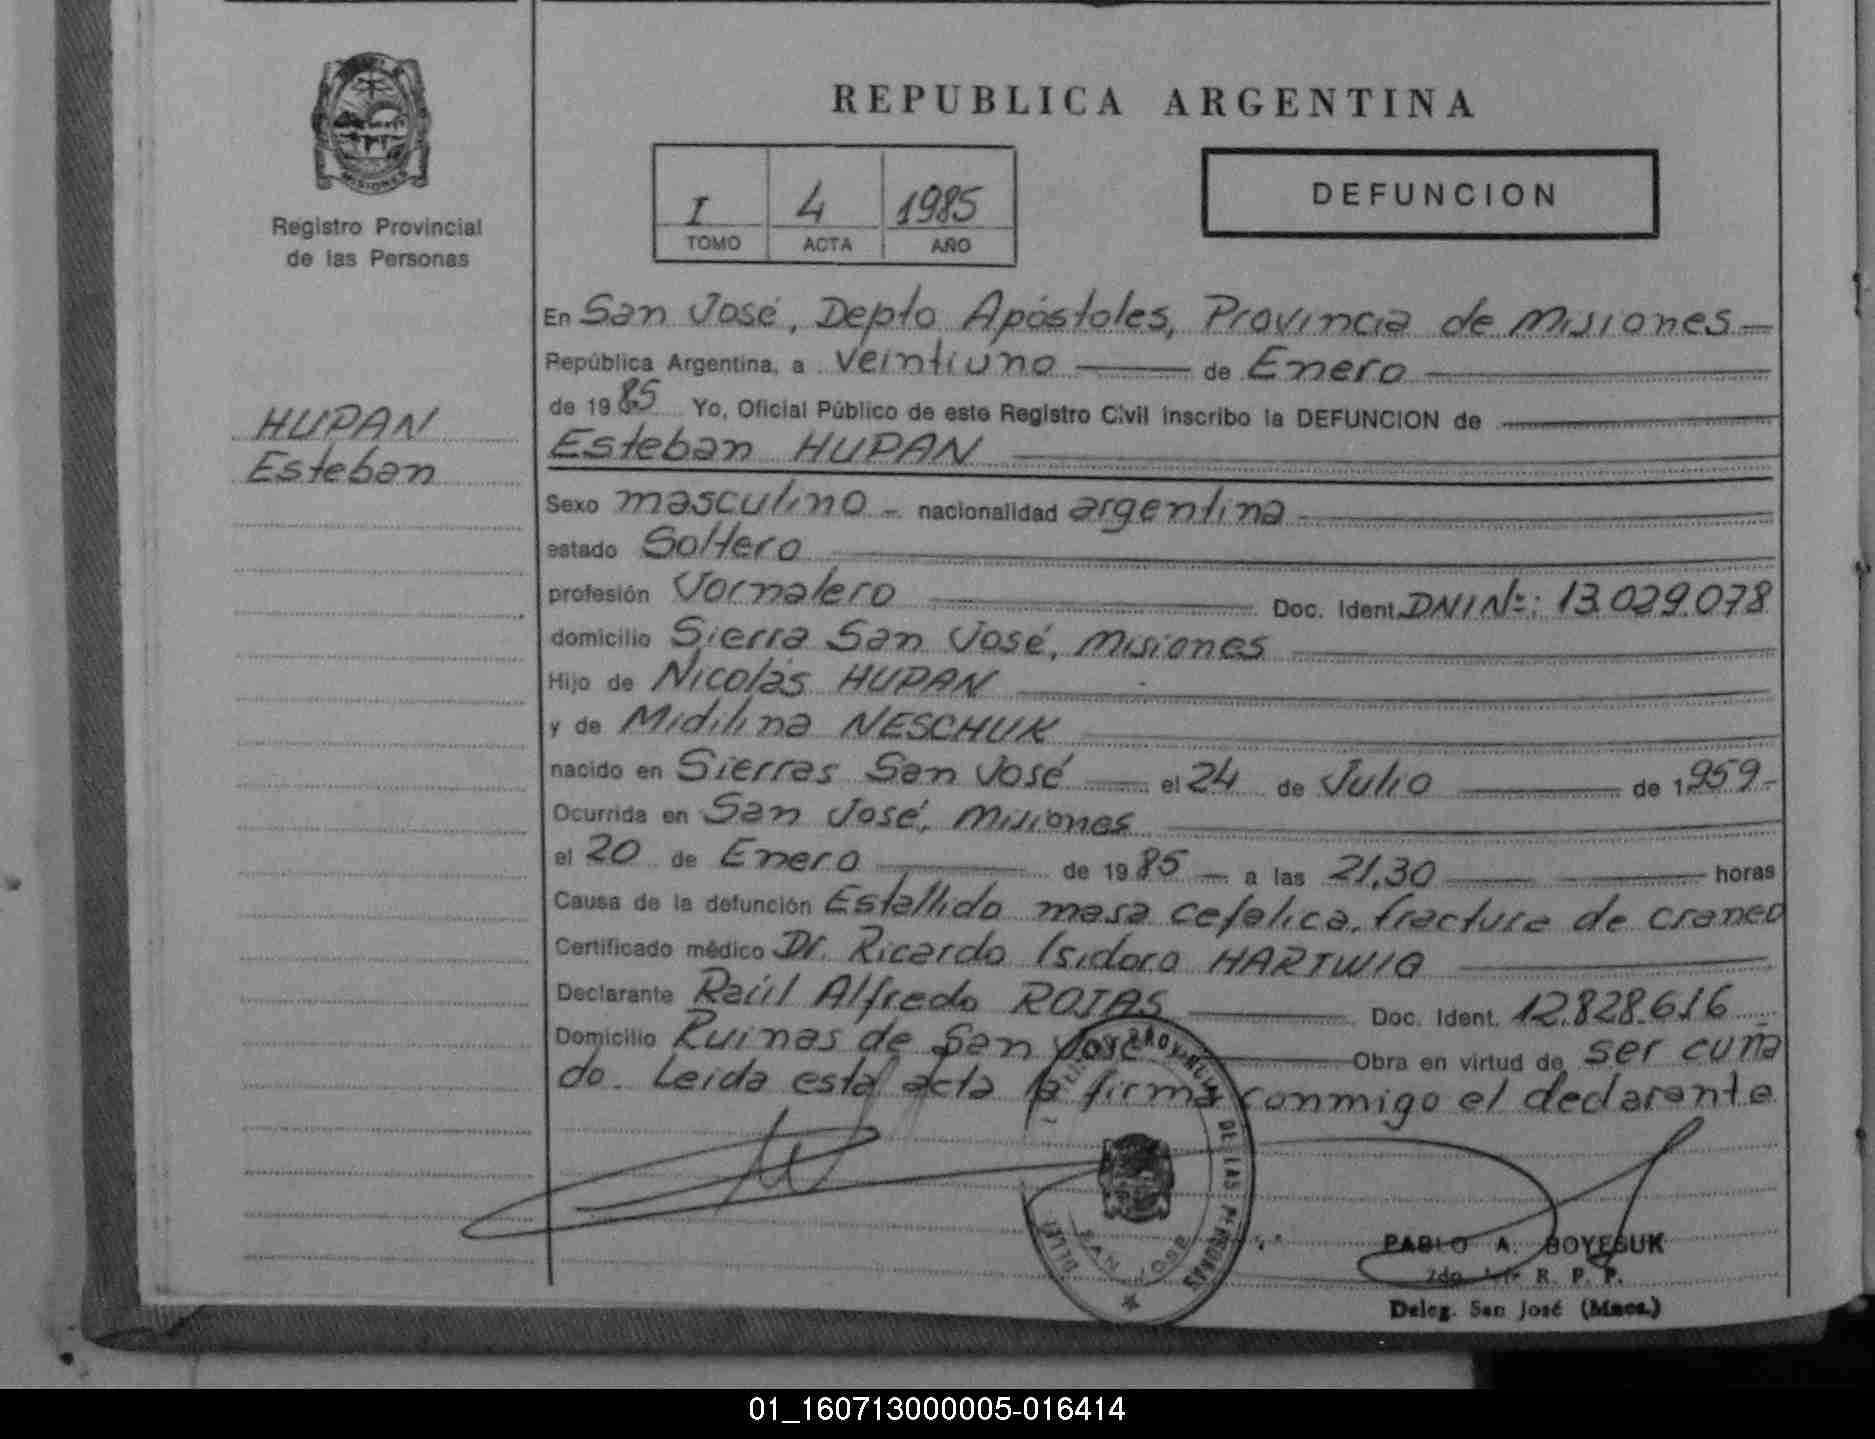 MISIONES
Registro Provincial
de las Personas
HUPAN
Esteban
REPUBLICA ARGENTINA
I 4 1985
TOMO ACTA AÑO
DEFUNCION
En San José, Depto Apóstoles, Provincia de Misiones
República Argentina, a veintiuno de Enero
de 1985 Yo, Oficial Público de este Registro Civil inscribo la DEFUNCION de
Esteban HUPAN
Sexo masculino - nacionalidad argentina
estado Soltero
profesión Jornalero Doc. Ident. DNI Nº: 13.029.078
domicilio Sierra San José, Misiones
Hijo de Nicolás HUPAN
y de Midilina NESCHUK
nacido en Sierras San José el 24 de Julio de 1959-
Ocurrida en San José, Misiones
el 20 de Enero de 1985 a las 21,30 horas
Causa de la defunción Estallido masa cefalica, fractura de craneo
Certificado médico Dr. Ricardo Isidoro HARTWIG
Declarante Raúl Alfredo ROJAS Doc. Ident. 12.828.616
Domicilio Ruinas de San José Obra en virtud de ser cuña
do. Leida esta acta la firma conmigo el declarante
DE LAS PERSONAS
SAN JOSE
PABLO A. BOYESUK
R. P. P.
Deleg. San José (Mnes.)
01_160713000005-016414